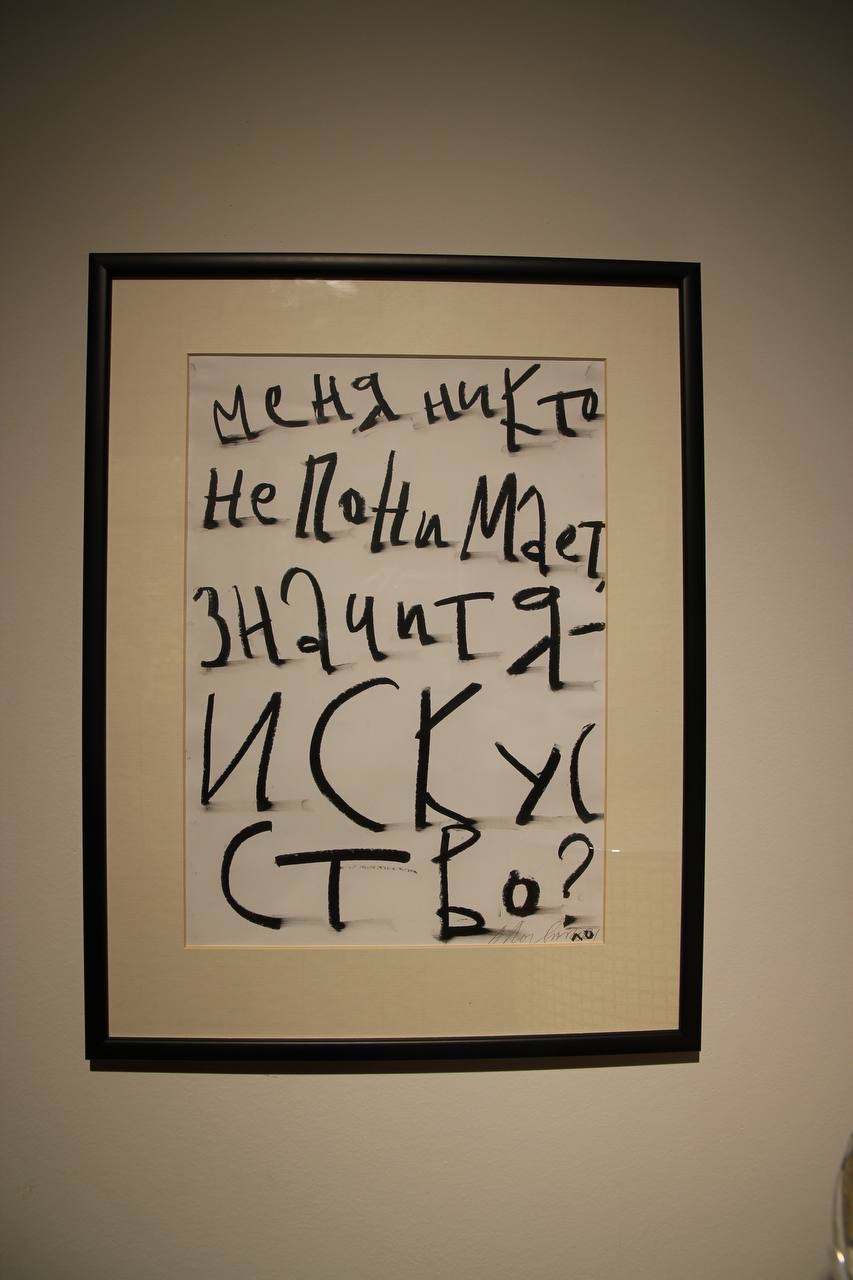 меня никто
не понимает,
значит я-
ИСКУС
СТВо?